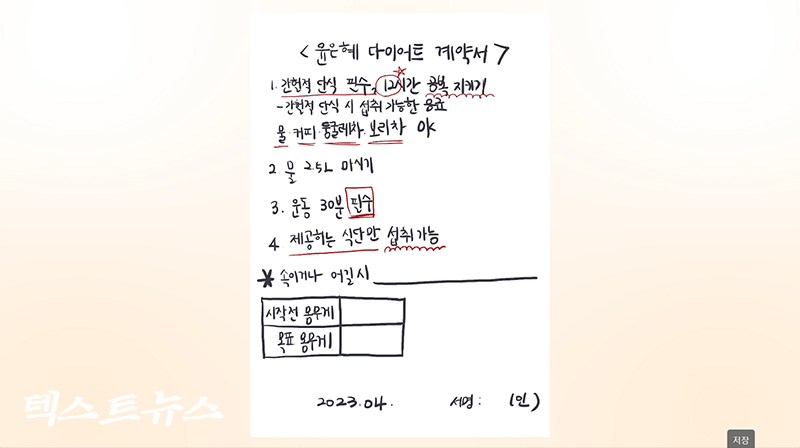 < 윤은혜 다이어트 계약서 >
1. 간헐적 단식 필수, 12시간 공복 지키기
- 간헐적 단식 시 섭취 가능한 음료
물 · 커피 · 둥굴레차 · 보리차 OK
2 물 2.5L 마시기
3. 운동 30분 필수
4 제공하는 식단만 섭취 가능
* 속이거나 어길시
시작전 몸무게
목표 몸무게
2023.04. 서명 : (인)
텍스트뉴스
저장